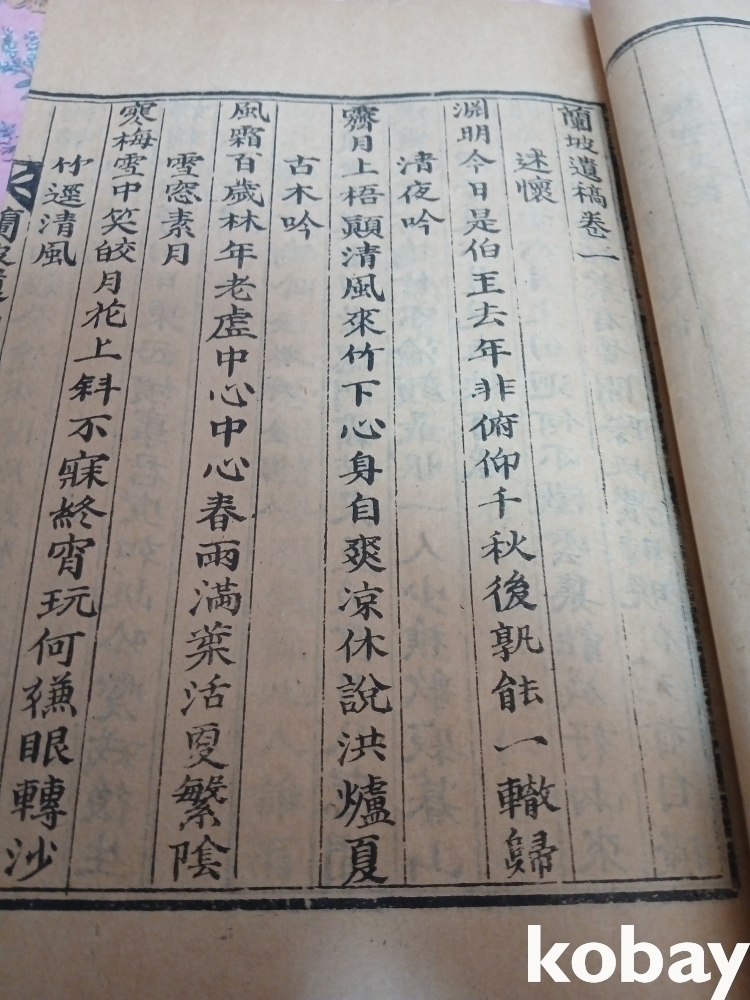 蘭坡遺稿卷一
述懷
淵明今日是伯王去年非俯仰千秋後孰能一轍歸
清夜吟
霽月上梧顚清風來竹下心身自爽凉休說洪爐夏
古木吟
風霜百歲林年老虛中心中心春雨滿葉活夏繁陰
雪窓素月
寒梅雪中笑皎月花上斜不寐終宵玩何嫌眼轉沙
竹逕清風
蘭坡遺
kobay